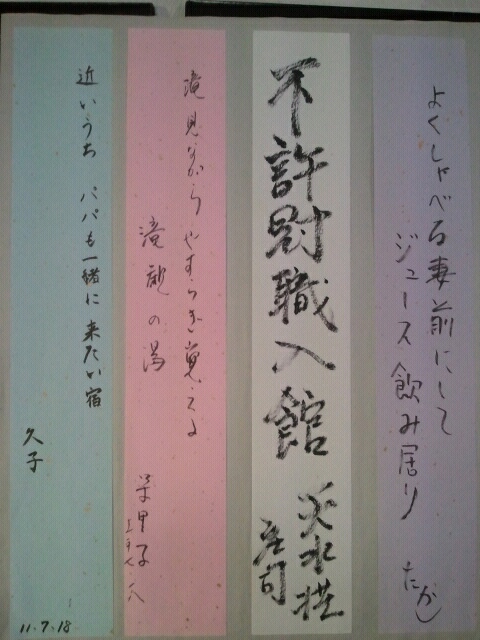 よくしゃべる妻前にして
ジュース飲み居り
たかし
不許尉職入館
庄司
滝見ながらやすらぎ覚える
滝龍の湯
近いうち パパも一緒に 来たい宿
久子
11.7.18